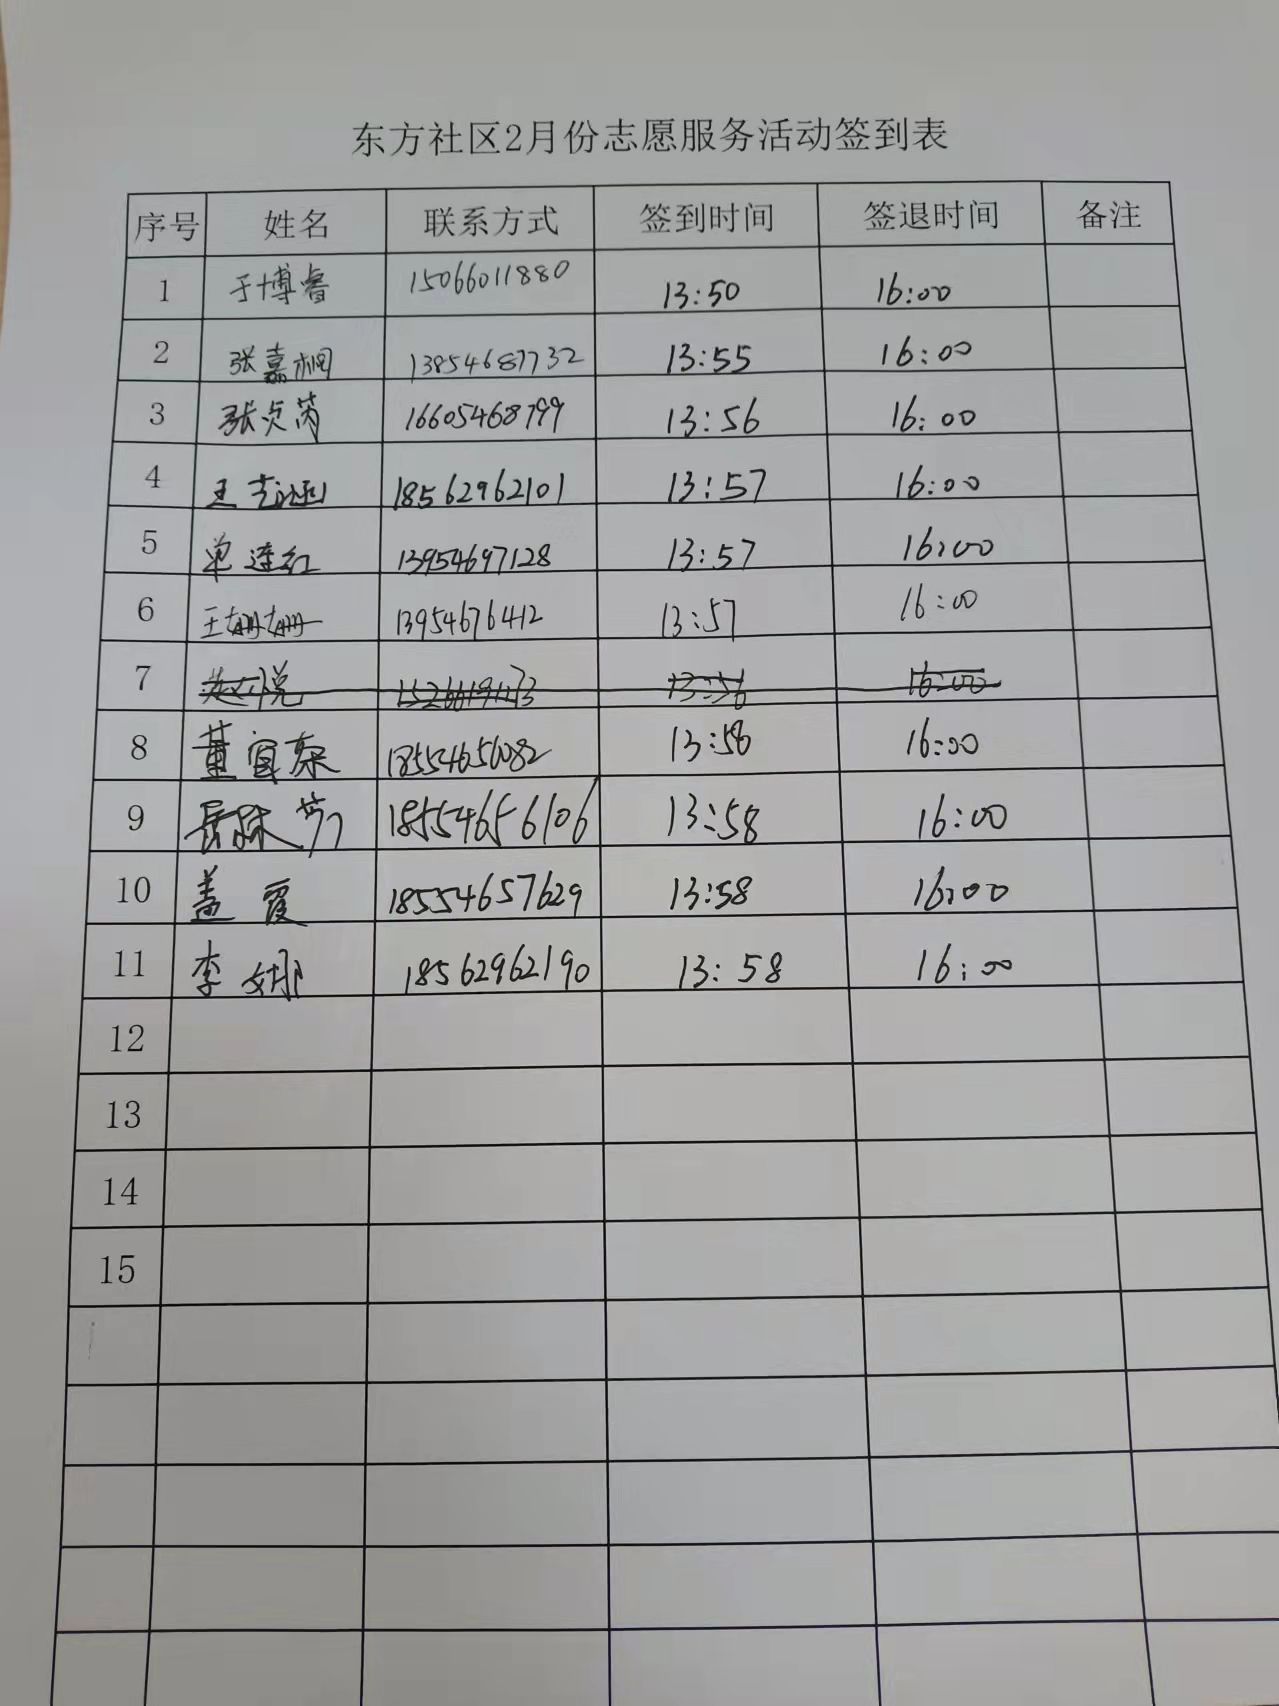 东方社区2月份志愿服务活动签到表
序号 姓名 联系方式 签到时间 签退时间 备注
1 于博睿 15066011880 13:50 16:00
2 张嘉桐 13854687732 13:55 16:00
3 张贞芮 16605468799 13:56 16:00
4 王志涵 18562962101 13:57 16:00
5 单连红 13954697128 13:57 16:00
6 王姗姗 13954676412 13:57 16:00
7 16:00
8 董宜东 18554656082 13:58 16:00
9 18554656106 13:58 16:00
10 盖霞 18554657629 13:58 16:00
11 李娜 18562962190 13:58 16:00
12
13
14
15